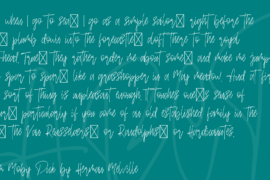 when I go to sea I go as a simple sailor right before the
plumb down into the forecastle aloft there to the royal
head True they rather order me about some and make me jump
spar to spar like a grasshopper in a May meadow And at
sort of thing is unpleasant enough It touches one's sense of
particularly if you come of an old established family in the
The Van Rensselaers or Randolphs or Hardicanutes
Moby Dick by Herman Melville